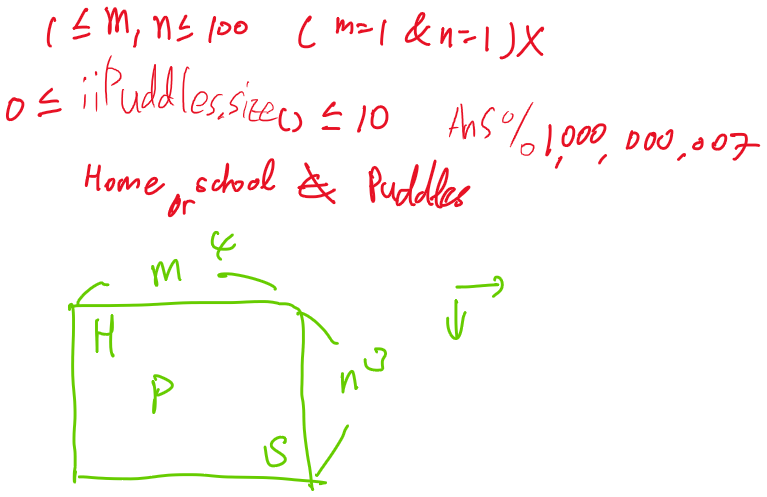 1 ≤ m, n ≤ 100 ( m=1 & n=1 ) X
0 ≤ iiPuddles.size() ≤ 10 Ans % 1,000,000,007
Home or school & Puddles
m 4
H
n 3
P
S